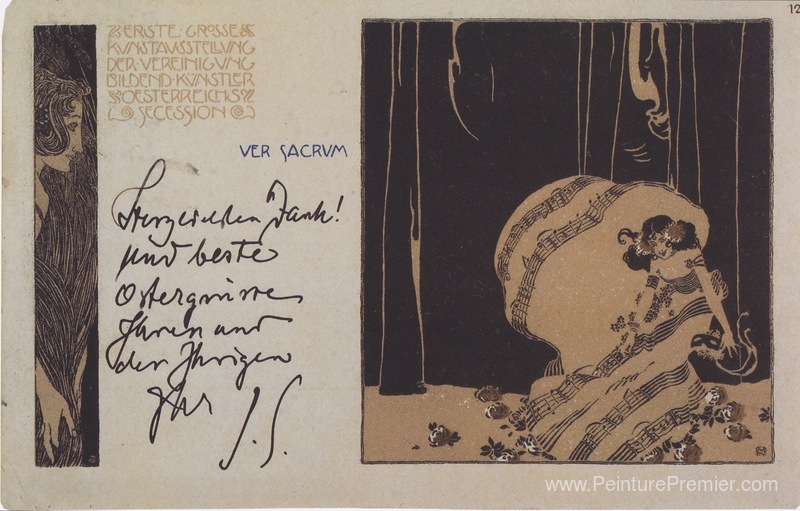 ERSTE GROSSE
KUNSTAUSSTELLUNG
DER VEREINIGUNG
BILDEND·KÜNSTLER
OESTERREICHS
SECESSION
VER SACRVM
Herzlichen Dank!
und beste
Ostergrüsse
Ihnen und
den Ihrigen
Ihr
J. S.
12
www.PeinturePremier.com